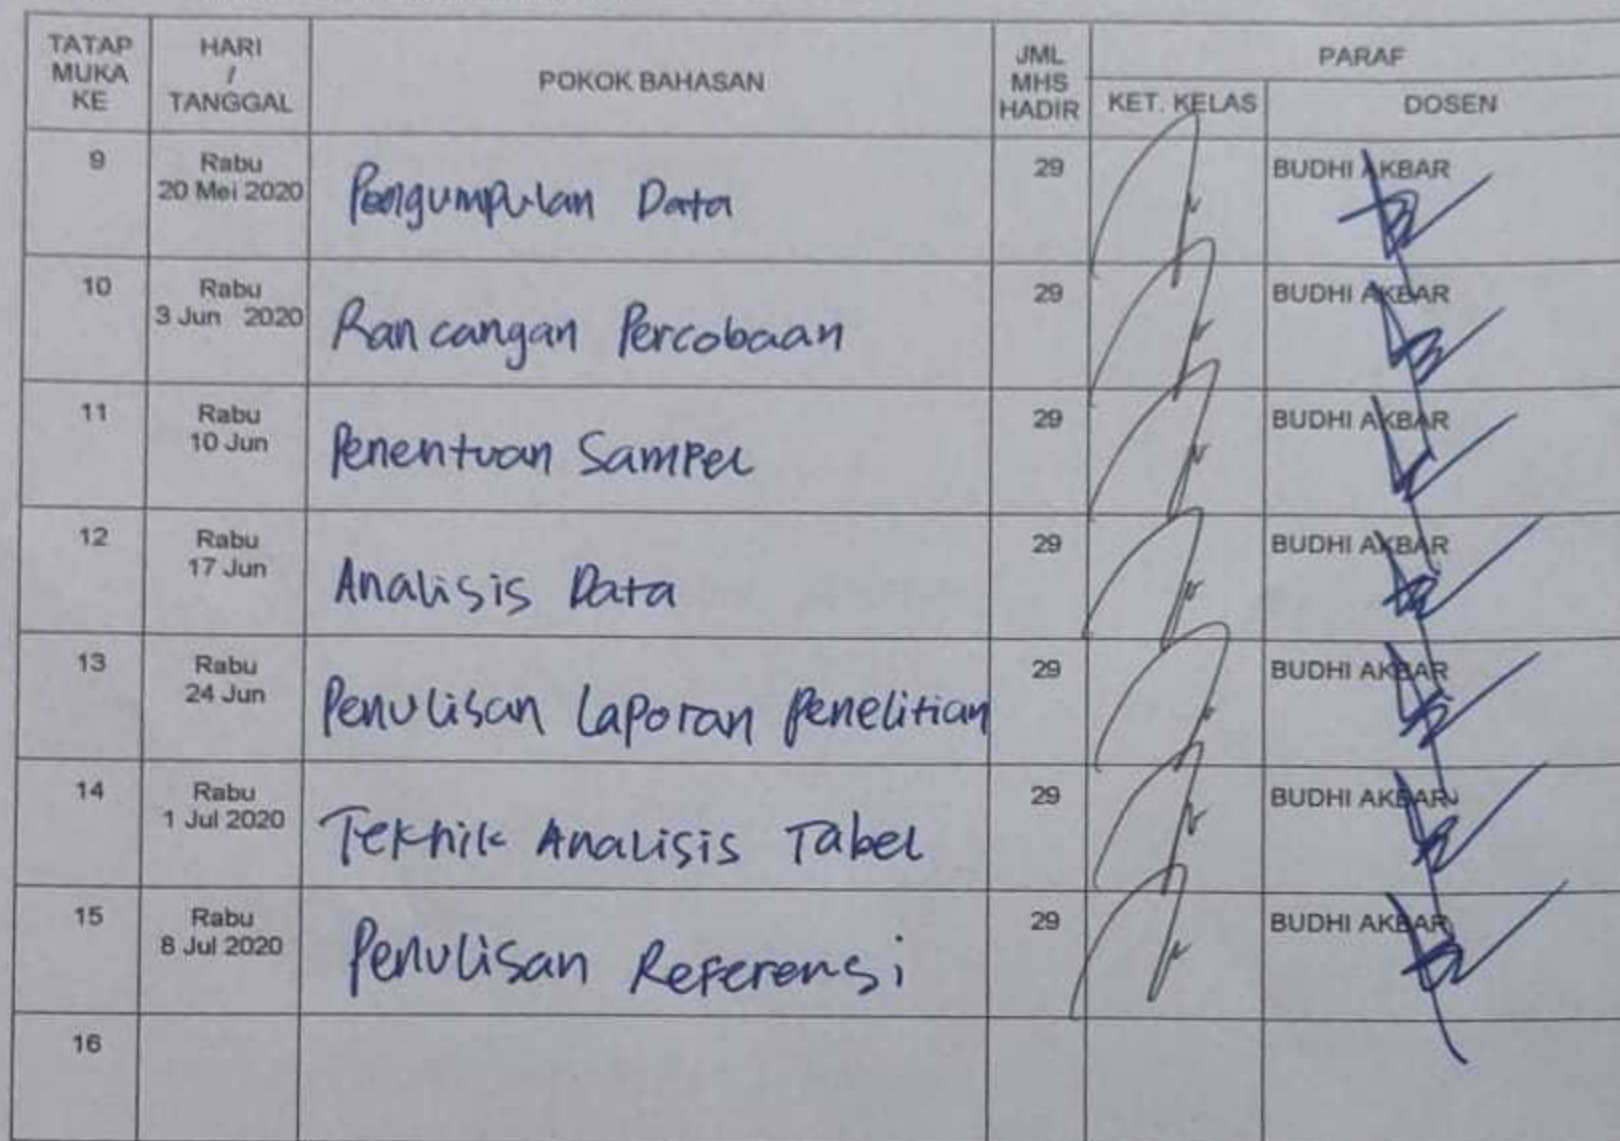 TATAP MUKA KE HARI / TANGGAL POKOK BAHASAN JML MHS HADIR PARAF
KET. KELAS DOSEN
9 Rabu 20 Mei 2020 Pengumpulan Data 29 BUDHI AKBAR
10 Rabu 3 Jun 2020 Rancangan Percobaan 29 BUDHI AKBAR
11 Rabu 10 Jun Penentuan Sampel 29 BUDHI AKBAR
12 Rabu 17 Jun Analisis Data 29 BUDHI AKBAR
13 Rabu 24 Jun Penulisan Laporan Penelitian 29 BUDHI AKBAR
14 Rabu 1 Jul 2020 Teknik Analisis Tabel 29 BUDHI AKBAR
15 Rabu 8 Jul 2020 Penulisan Referensi 29 BUDHI AKBAR
16